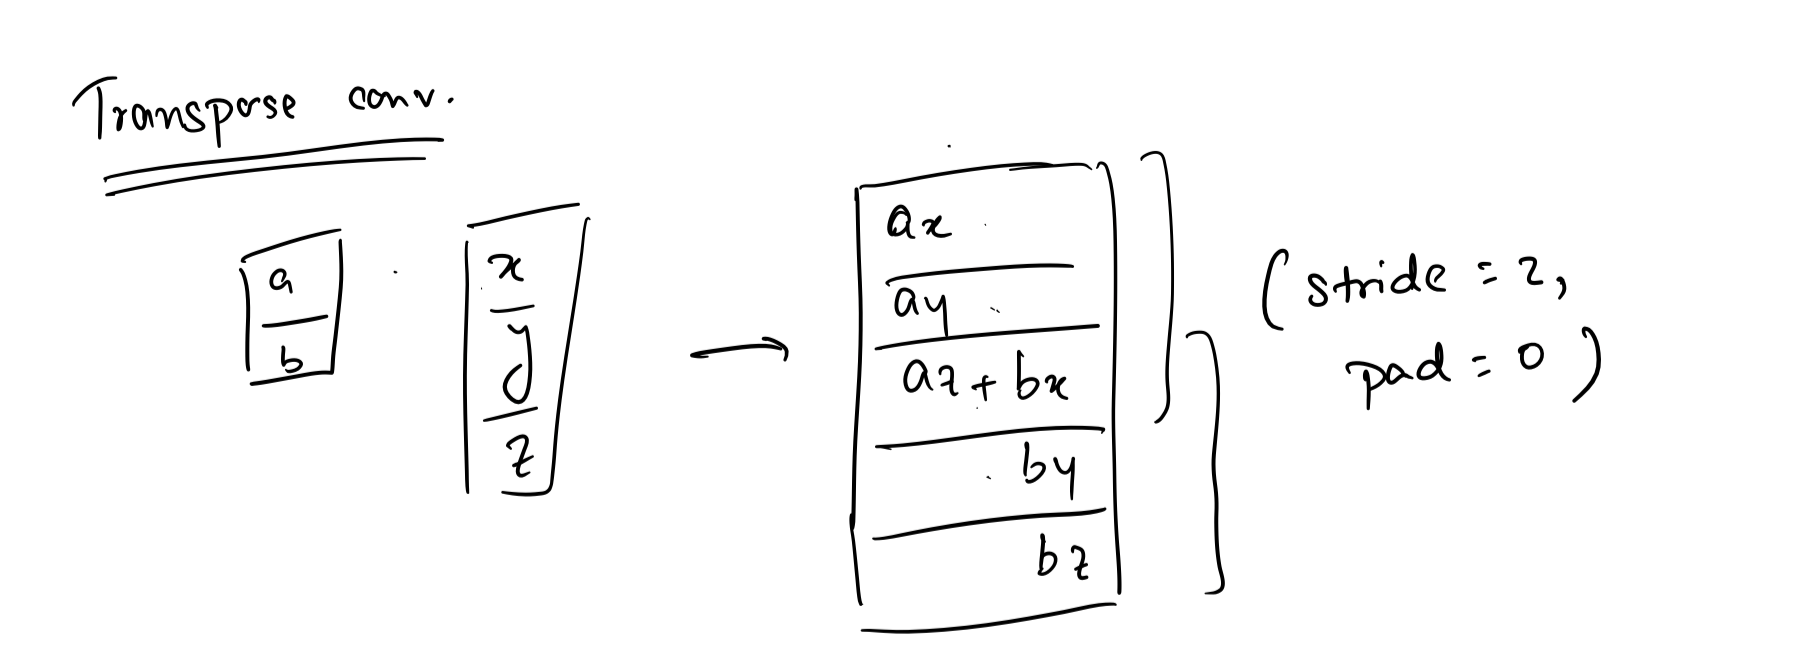 Transpose conv.
a
b
x
y
z
→
ax
ay
az + bx
by
bz
(stride = 2,
pad = 0)